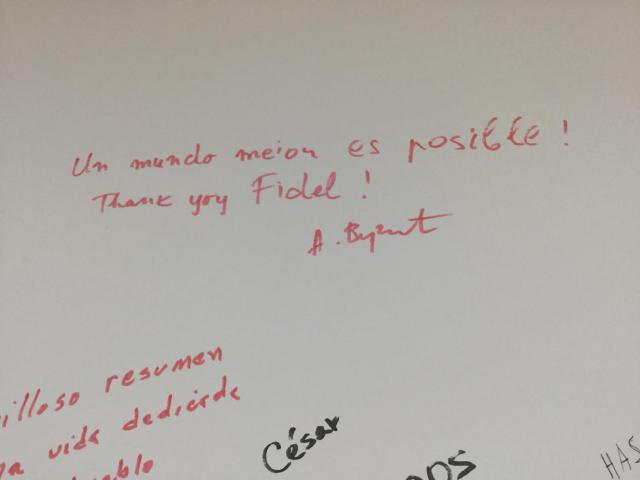 Un mundo meior es posible!
Thank yoy Fidel!
A.
illoso resumen
vida dedicada
César
HAS